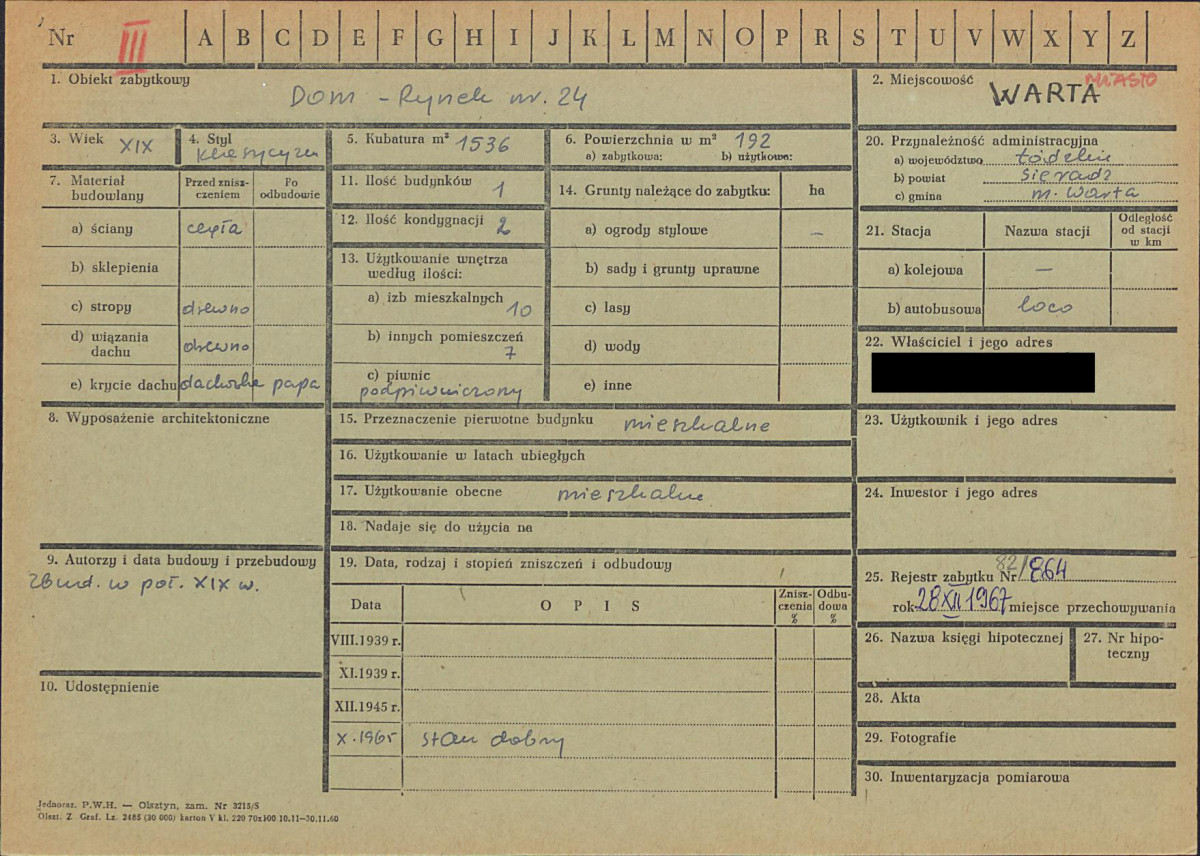 Nr III A B C D E F G H I J K L M N O P R S T U V W X Y Z
1. Obiekt zabytkowy
DOM – Rynek nr. 24
2. Miejscowość
MIASTO
WARTA
3. Wiek XIX
4. Styl
klasycyzm
5. Kubatura m³ 1536
6. Powierzchnia w m² 192
a) zabytkowa: b) użytkowa:
7. Materiał budowlany
Przed zniszczeniem
Po odbudowie
a) ściany cegła
b) sklepienia
c) stropy drewno
d) wiązania dachu drewno
e) krycie dachu dachówka papa
8. Wyposażenie architektoniczne
9. Autorzy i data budowy i przebudowy
zbud. w poł. XIX w.
10. Udostępnienie
11. Ilość budynków 1
12. Ilość kondygnacji 2
13. Użytkowanie wnętrza
według ilości:
a) izb mieszkalnych
10
b) innych pomieszczeń
7
c) piwnic
podpiwniczony
14. Grunty należące do zabytku: ha
a) ogrody stylowe –
b) sady i grunty uprawne
c) lasy
d) wody
e) inne
15. Przeznaczenie pierwotne budynku mieszkalne
16. Użytkowanie w latach ubiegłych
17. Użytkowanie obecne mieszkalne
18. Nadaje się do użycia na
19. Data, rodzaj i stopień zniszczeń i odbudowy
Data O P I S Zniszczenia % Odbudowa %
VIII.1939 r.
XI.1939 r.
XII.1945 r.
X.1965 stan dobry
20. Przynależność administracyjna
a) województwo łódzkie
b) powiat sieradz
c) gmina m. Warta
21. Stacja Nazwa stacji Odległość od stacji w km
a) kolejowa –
b) autobusowa loco
22. Właściciel i jego adres
23. Użytkownik i jego adres
24. Inwestor i jego adres
25. Rejestr zabytku Nr 82/864
rok 28 XII 1967 miejsce przechowywania
26. Nazwa księgi hipotecznej
27. Nr hipoteczny
28. Akta
29. Fotografie
30. Inwentaryzacja pomiarowa
Jednoraz. P.W.H. — Olsztyn, zam. Nr 3215/S
Olszt. Z. Graf. Lz. 2485 (30 000) karton V kl. 220 70x100 10.11—30.11.60